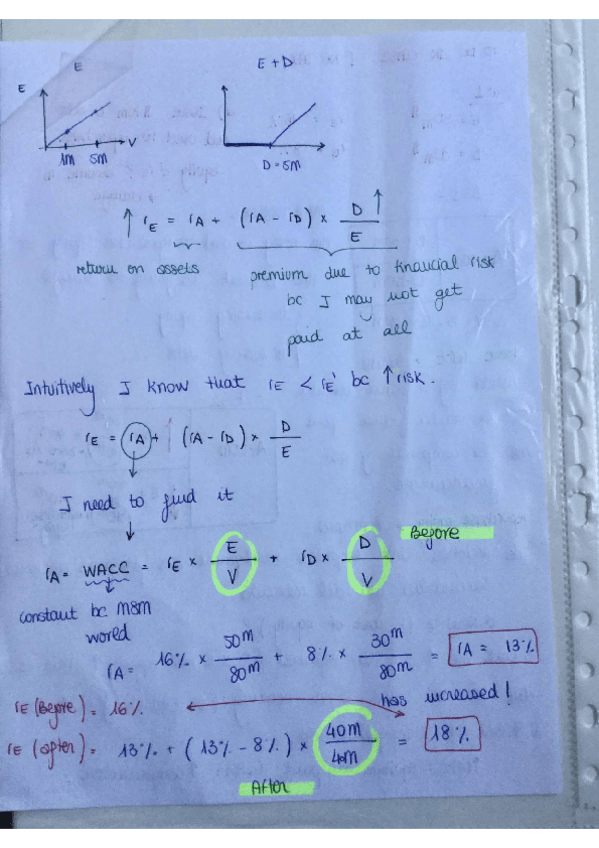 E
E + D
E
V
1M 5M
D = 5M
↑ rE = rA + (rA - rD) × D/E ↑
return on assets
premium due to financial risk
bc I may not get
paid at all
Intuitively I know that rE < rE' bc ↑ risk.
rE = rA + (rA - rD) × D/E
I need to find it
Before
rA = WACC = rE × E/V + rD × D/V
constant bc M&M
world
rA = 16% × 50M/80M + 8% × 30M/80M = rA = 13%
has increased!
rE (Before) = 16%
rE (after) = 13% + (13% - 8%) × 40M/40M = 18%
After